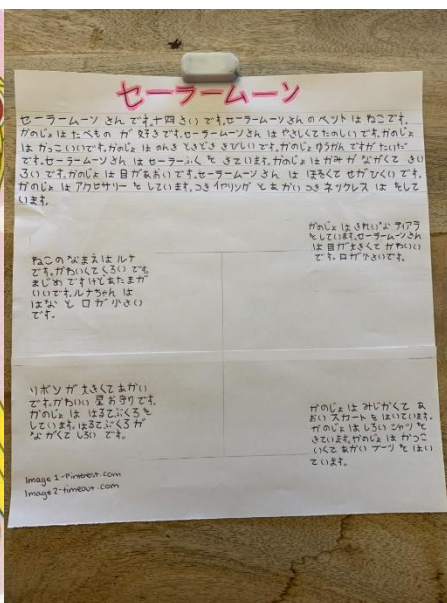 セーラームーン
セーラームーン さん です。十四さい です。セーラームーンさん の ペット は ねこ です。
かのじょ は たべもの が 好き です。セーラームーンさん は やさしくて たのしい です。かのじょ
は かっこいい です。かのじょ は のんき ときどき きびしい です。かのじょ ゆうかん ですが たいだ
です。セーラームーンさん は セーラーふく を きています。かのじょ は かみ が ながくて きい
ろい です。かのじょ は 目 が あおい です。セーラームーンさん は ほそくて せ が ひくい です。
かのじょ は アクセサリー と しています。つき イヤリング と あかい つき ネックレス は をして
います。
かのじょ は きれい な ティアラ
を しています。セーラームーンさん
は 目 が 大きくて かわいい
です。口 が 小さい です。
ねこ の なまえ は ルナ
です。かわいくて くろい です。
まじめ ですけど あたま が
いい です。ルナちゃん は
はな と 口 が 小さい
です。
リボン が 大きくて あかい
です。かわいい 星 お守り です。
かのじょ は はるてぶくろ を
しています。はるてぶくろ が
ながくて しろい です。
かのじょ は みじかくて あ
おい スカート を はいています。
かのじょ は しろい シャツ を
きています。かのじょ は かっこ
いくて あかい ブーツ を はい
ています。
Image 1-Pinterest.com
Image 2-timeout.com